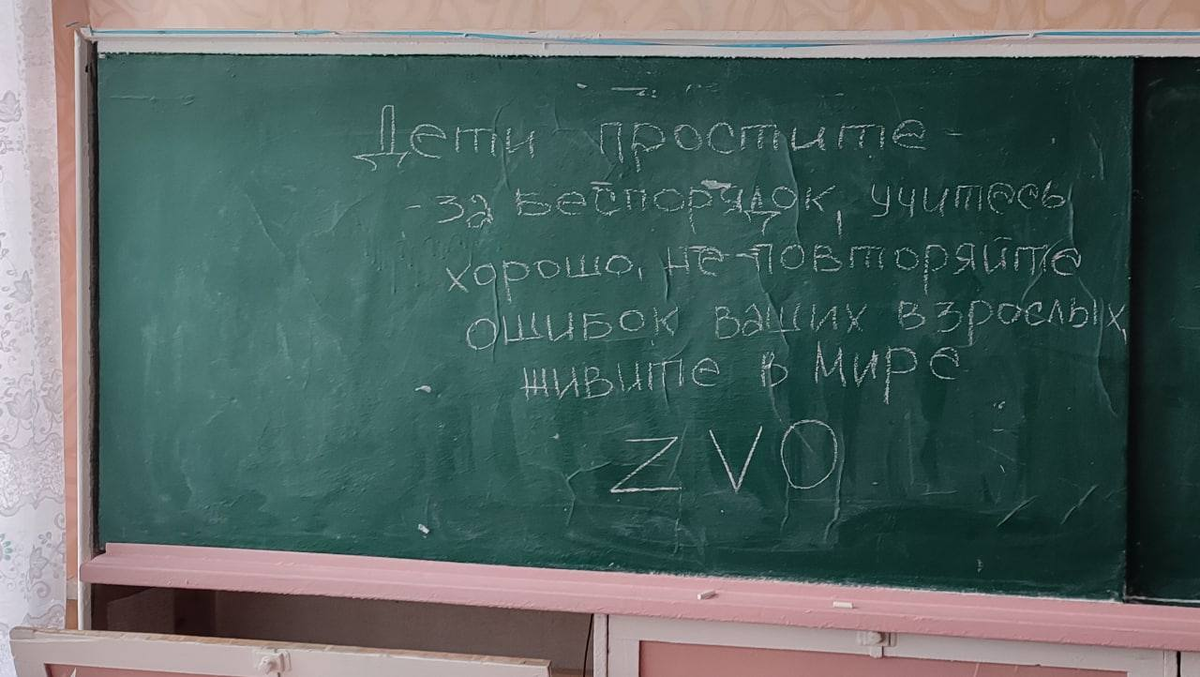 Дети простите -
- за беспорядок, учитесь
хорошо, не повторяйте
ошибок ваших взрослых,
живите в мире
Z V O